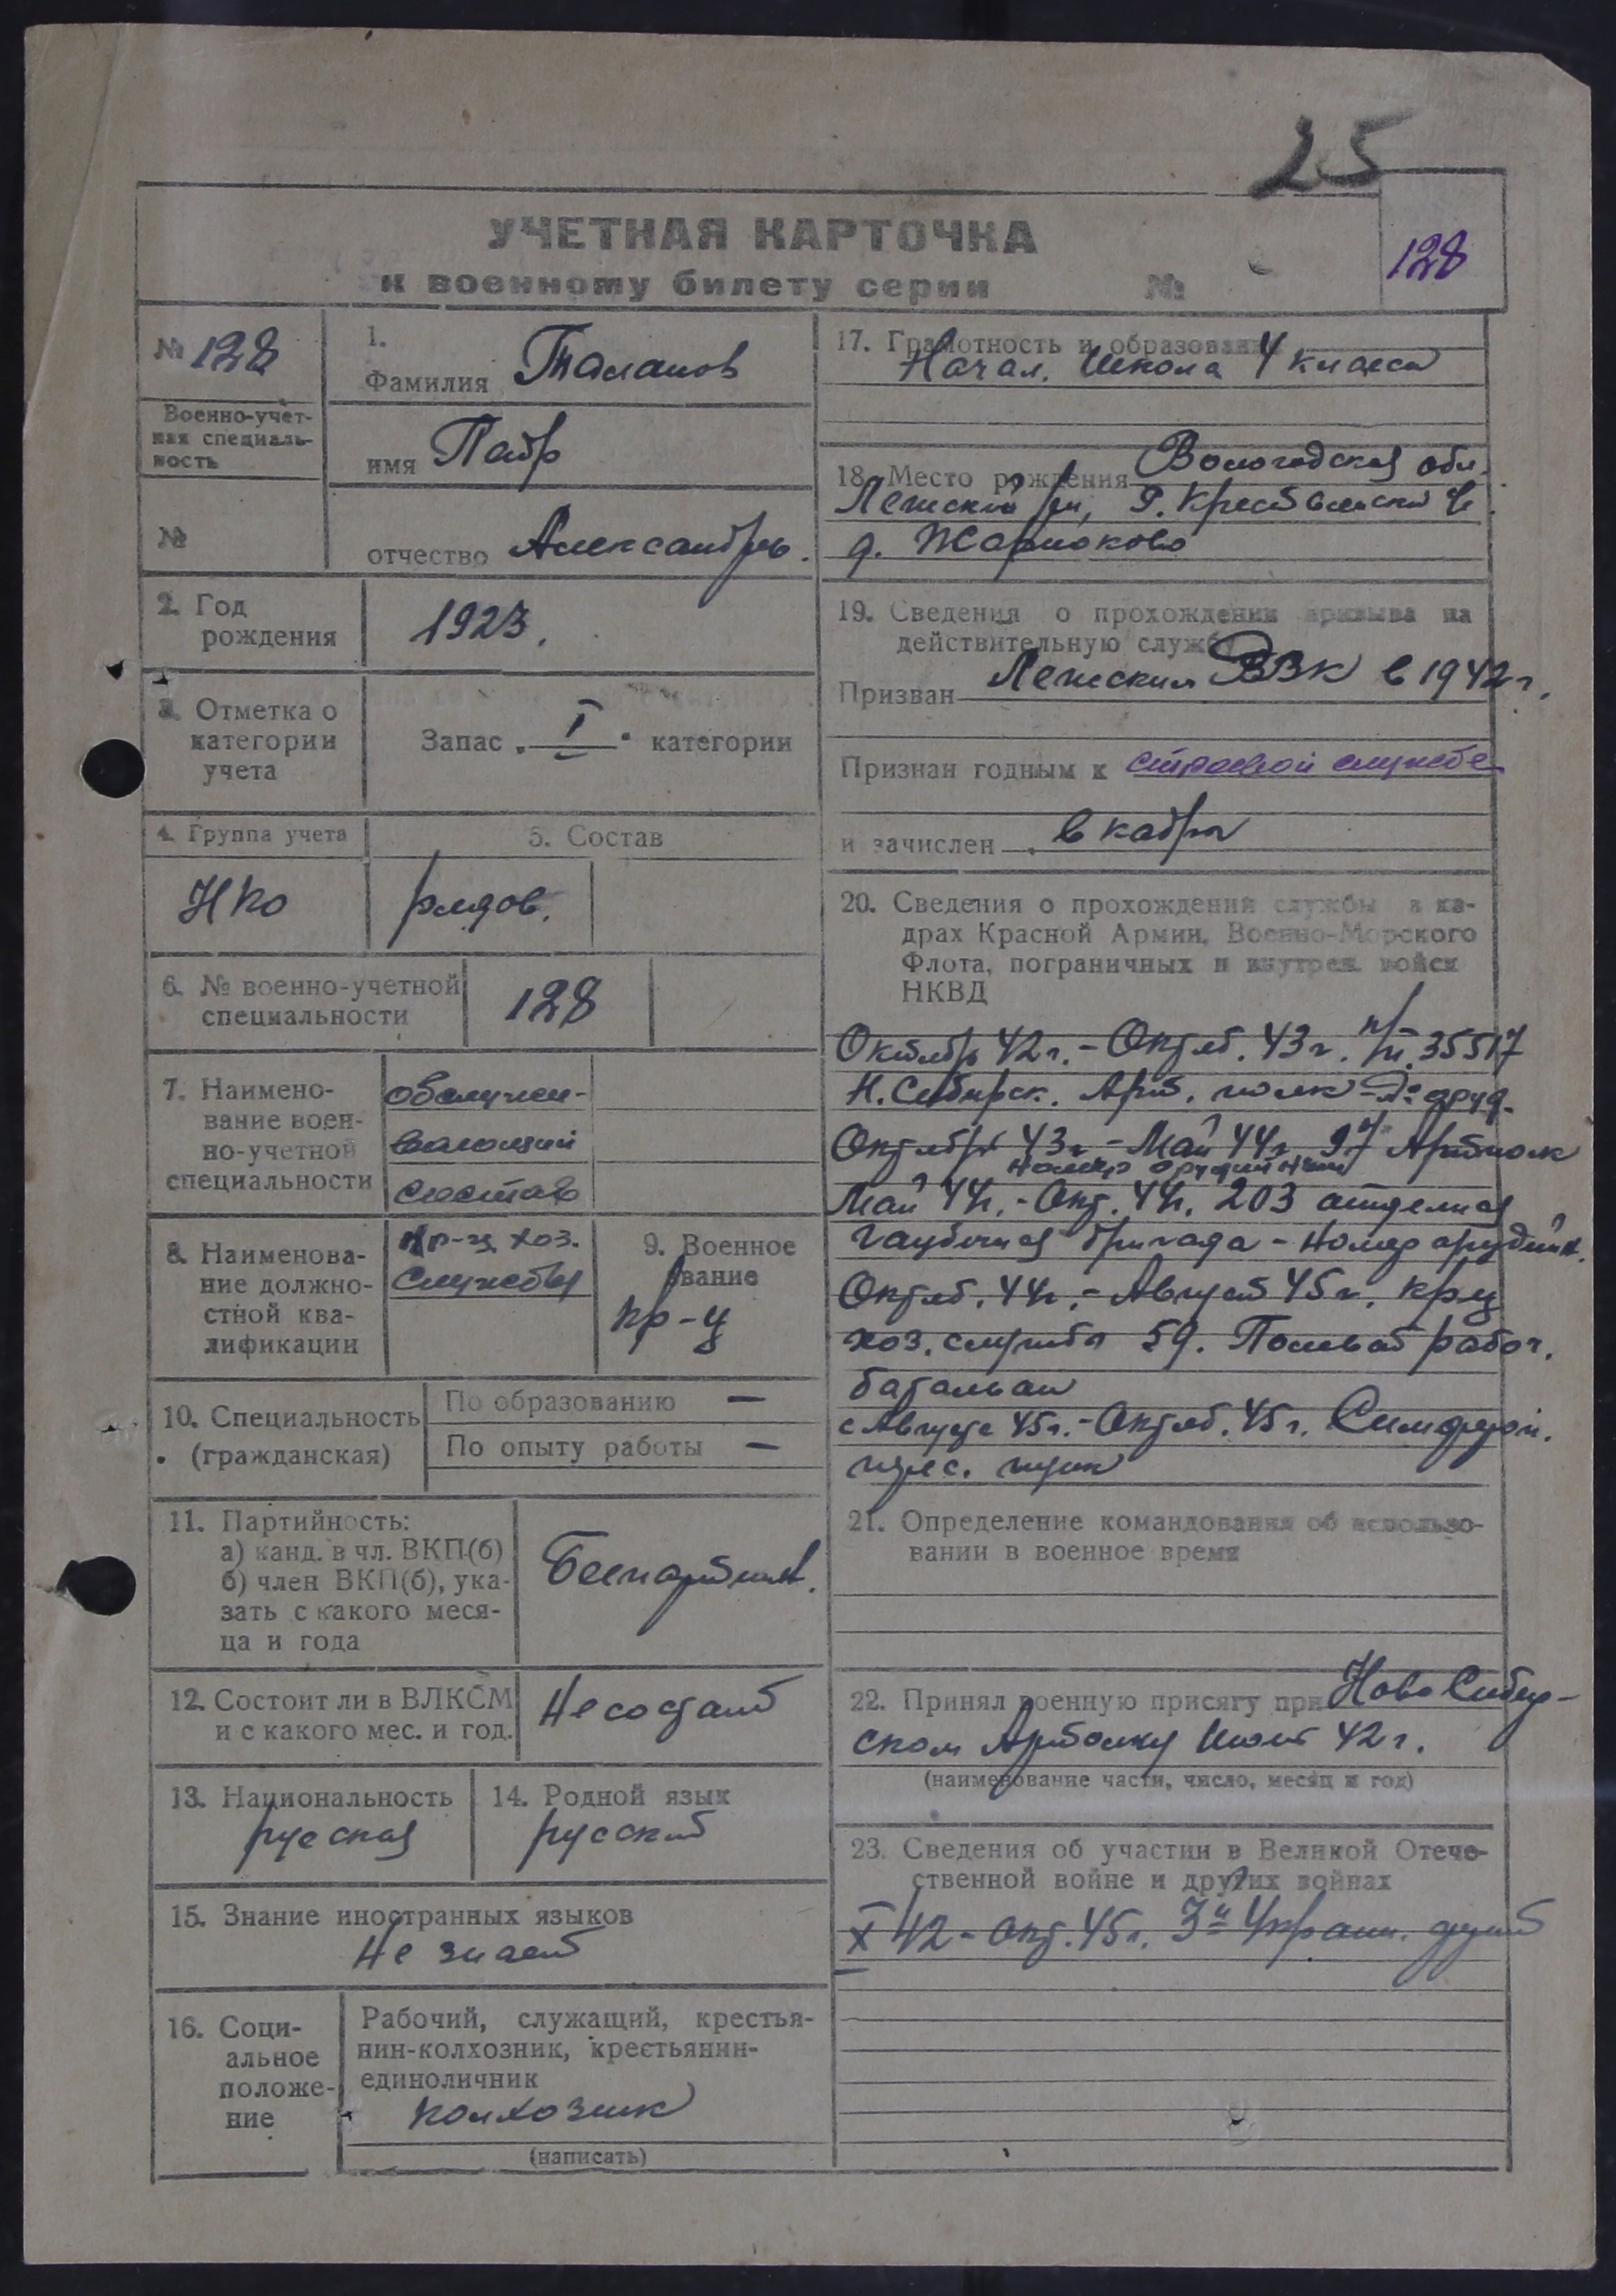 25
УЧЕТНАЯ КАРТОЧКА
к военному билету серии №
128
№ 128
Военно-учет-
ная специаль-
ность
№
1.
Фамилия Таланов
имя Петр
отчество Александров.
2. Год
рождения
1923.
3. Отметка о
категории
учета
Запас „ I " категории
4. Группа учета
5. Состав
НКО
рядов.
6. № военно-учетной
специальности
128
7. Наимено-
вание воен-
но-учетной
специальности
обслужи-
вающий
состав
8. Наименова-
ние должно-
стной ква-
лификации
кр-ц хоз.
службы
9. Военное
звание
кр-ц
10. Специальность
(гражданская)
По образованию —
По опыту работы —
11. Партийность:
а) канд. в чл. ВКП(б)
б) член ВКП(б), ука-
зать с какого меся-
ца и года
Беспартийн.
12. Состоит ли в ВЛКСМ
и с какого мес. и год.
Не состоит
13. Национальность
русская
14. Родной язык
русский
15. Знание иностранных языков
Не знает
16. Соци-
альное
положе-
ние
Рабочий, служащий, крестья-
нин-колхозник, крестьянин-
единоличник
колхозник
(написать)
17. Грамотность и образование
Начал. школа 4 класса
18. Место рождения Вологодская обл.
Лежский р-н,
д.
19. Сведения о прохождении призыва на
действительную службу
Призван Лежским РВК в 1942 г.
Признан годным к строевой службе
и зачислен в кадры
20. Сведения о прохождении службы в ка-
драх Красной Армии, Военно-Морского
Флота, пограничных и внутрен. войск
НКВД
Октябрь 42 г. - Октяб. 43 г. п/п. 35517
Н. Сибирск. Арт. полк
Октябрь 43 г - Май 44 г 97 Артполк
номер орудийный
Май 44 г. - Окт. 44 г. 203 отдельная
гаубичная бригада - номер орудийн.
Октяб. 44 г. - Август 45 г. кр-ц
хоз. службы 59. Полевой рабоч.
батальон
с Августа 45 г. - Октяб. 45 г.
перес. пункт
21. Определение командования об использо-
вании в военное время
22. Принял военную присягу при Ново Сибир-
ском Артполку 42 г.
(наименование части, число, месяц и год)
23. Сведения об участии в Великой Отече-
ственной войне и других войнах
X 42 - окт. 45 г. 3й Украин. фронт